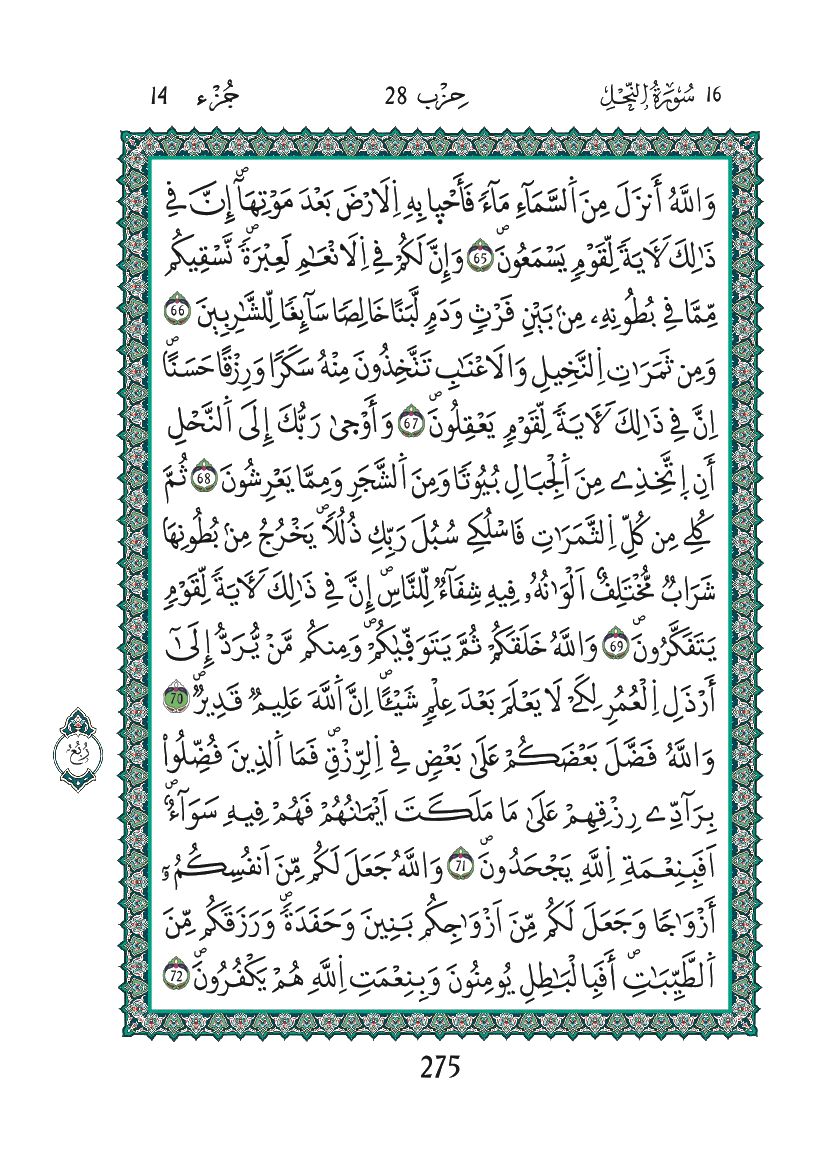 16 سُورَةُ اُ۬لنَّحْلِ حِزْب 28 جُزْء 14
وَاللَّهُ أَنزَلَ مِنَ اَ۬لسَّمَآءِ مَآءٗ فَأَحْي۪ا بِهِ اِ۬لَارْضَ بَعْدَ مَوْتِهَآۖ إِنَّ فِے
ذَٰلِكَ لَأٓيَةٗ لِّقَوْمٖ يَسْمَعُونَۖ 65 وَإِنَّ لَكُمْ فِے اِ۬لَانْعَٰمِ لَعِبْرَةٗۖ نَّسْقِيكُم
مِّمَّا فِے بُطُونِهِۦ مِنۢ بَيْنِ فَرْثٖ وَدَمٖ لَّبَناً خَالِصاٗ سَآئِغاٗ لِّلشَّٰرِبِينَ 66
وَمِن ثَمَرَٰتِ اِ۬لنَّخِيلِ وَالَاعْنَٰبِ تَتَّخِذُونَ مِنْهُ سَكَراٗ وَرِزْقاً حَسَناًۖ
اِنَّ فِے ذَٰلِكَ لَأٓيَةٗ لِّقَوْمٖ يَعْقِلُونَۖ 67 وَأَوْح۪ىٰ رَبُّكَ إِلَى اَ۬لنَّحْلِ
أَنِ اِ۪تَّخِذِے مِنَ اَ۬لْجِبَالِ بُيُوتاٗ وَمِنَ اَ۬لشَّجَرِ وَمِمَّا يَعْرِشُونَۖ 68 ثُمَّ
كُلِے مِن كُلِّ اِ۬لثَّمَرَٰتِ فَاسْلُكِے سُبُلَ رَبِّكِ ذُلُلاٗۖ يَخْرُجُ مِنۢ بُطُونِهَا
شَرَابٞ مُّخْتَلِفٌ اَلْوَٰنُهُۥ فِيهِ شِفَآءٞ لِّلنَّاسِۖ إِنَّ فِے ذَٰلِكَ لَأٓيَةٗ لِّقَوْمٖ
يَتَفَكَّرُونَۖ 69 وَاللَّهُ خَلَقَكُمْ ثُمَّ يَتَوَفّ۪يٰكُمْۖ وَمِنكُم مَّنْ يُّرَدُّ إِلَىٰٓ
أَرْذَلِ اِ۬لْعُمُرِ لِكَےْ لَا يَعْلَمَ بَعْدَ عِلْمٖ شَيْـٔاًۖ اِنَّ اَ۬للَّهَ عَلِيمٞ قَدِيرٞۖ 70
رُبُع
وَاللَّهُ فَضَّلَ بَعْضَكُمْ عَلَىٰ بَعْضٖ فِے اِ۬لرِّزْقِۖ فَمَا اَ۬لذِينَ فُضِّلُواْ
بِرَآدِّے رِزْقِهِمْ عَلَىٰ مَا مَلَكَتَ اَيْمَٰنُهُمْ فَهُمْ فِيهِ سَوَآءٌۖ
اَفَبِنِعْمَةِ اِ۬للَّهِ يَجْحَدُونَۖ 71 وَاللَّهُ جَعَلَ لَكُم مِّنَ اَنفُسِكُمُۥٓ
أَزْوَٰجاٗ وَجَعَلَ لَكُم مِّنَ اَزْوَٰجِكُم بَنِينَ وَحَفَدَةٗۖ وَرَزَقَكُم مِّنَ
اَ۬لطَّيِّبَٰتِۖ أَفَبِالْبَٰطِلِ يُومِنُونَ وَبِنِعْمَتِ اِ۬للَّهِ هُمْ يَكْفُرُونَۖ 72
275